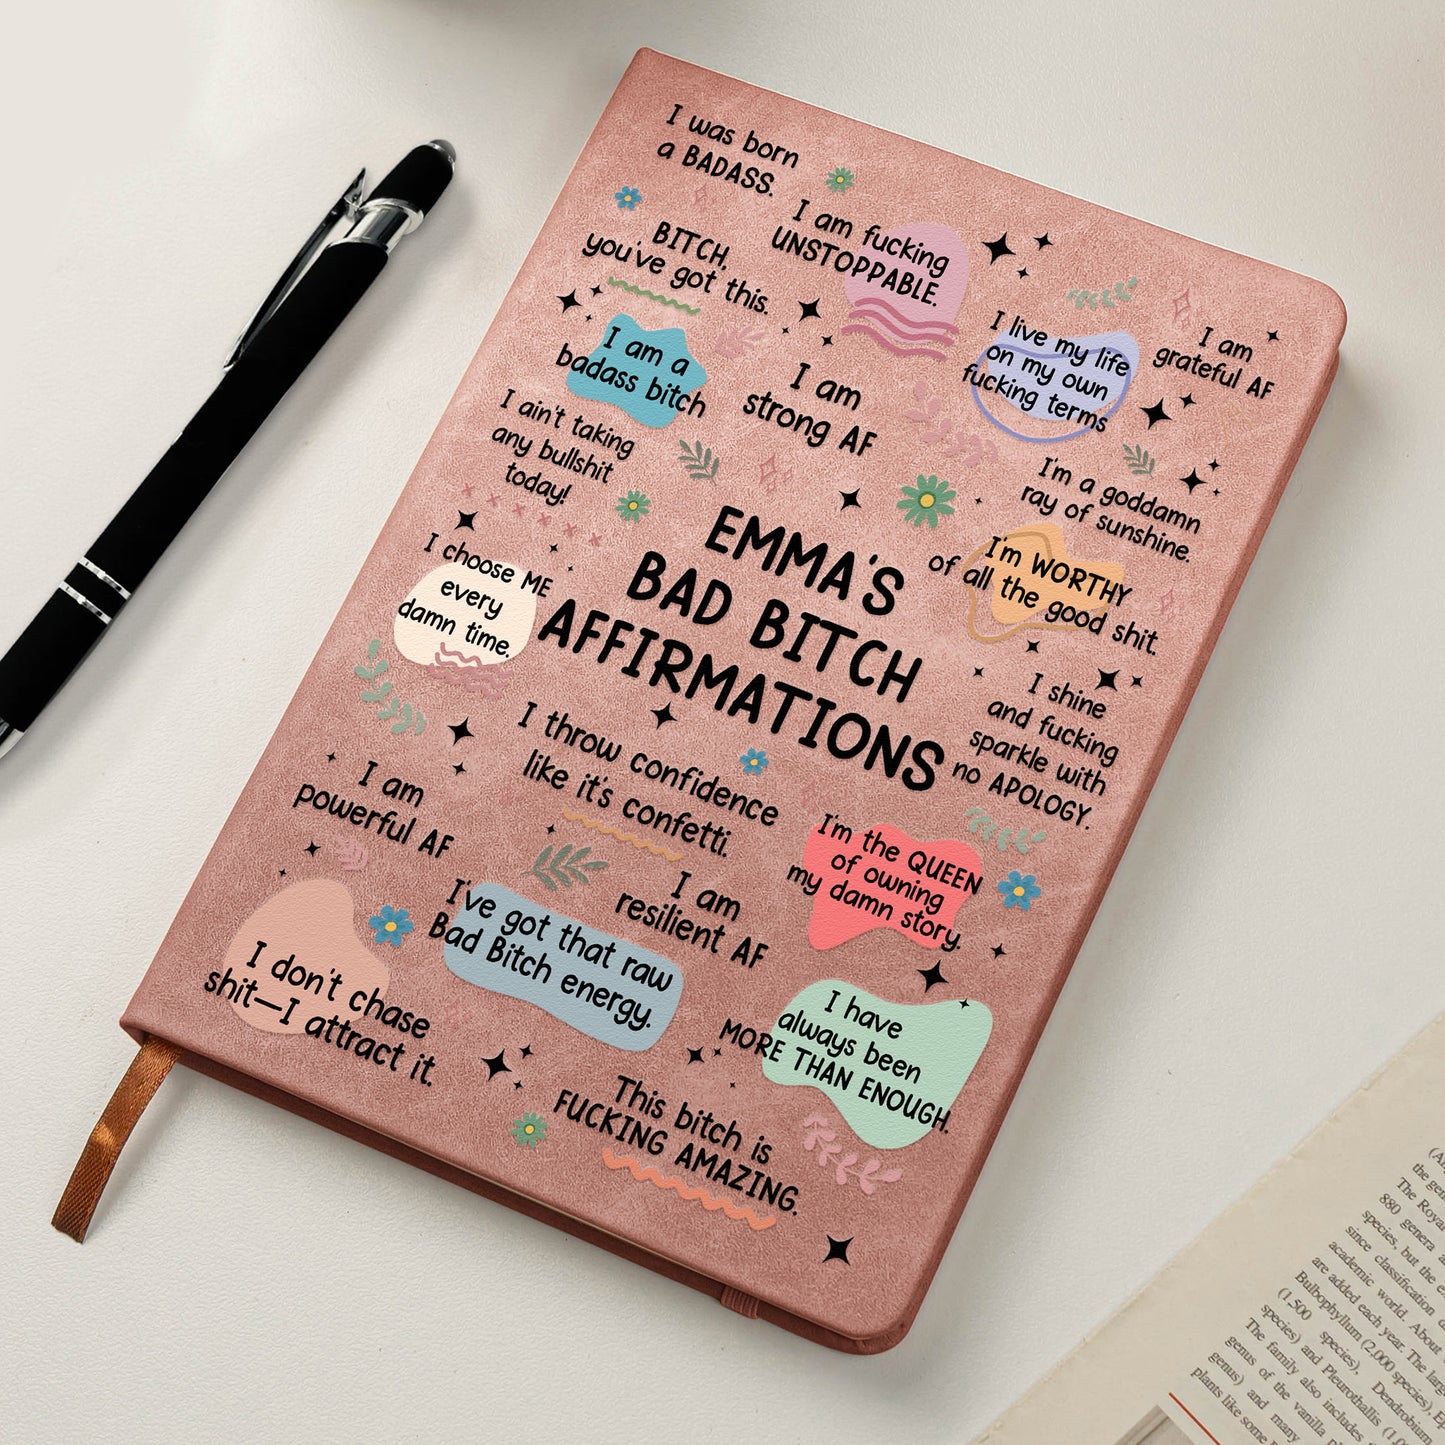 I was born
a BADASS.
I am fucking
UNSTOPPABLE.
BITCH,
you've got this.
I am a
badass bitch
I am
strong AF
I live my life
on my own
fucking terms
I am
grateful AF
I ain't taking
any bullshit
today!
I'm a goddamn
ray of sunshine.
I choose ME
every
damn time.
EMMA'S
BAD BITCH
AFFIRMATIONS
I'm WORTHY
of all the good shit.
I shine
and fucking
sparkle with
no APOLOGY.
I throw confidence
like it's confetti.
I am
powerful AF
I'm the QUEEN
of owning
my damn story.
I am
resilient AF
I've got that raw
Bad Bitch energy.
I don't chase
shit—I attract it.
I have
always been
MORE THAN ENOUGH.
This bitch is
FUCKING AMAZING.
the gen
The Royal
880 genera a
species, but the e
since classification
academic world. About
are added each year. The larg
Bulbophyllum (2,000 species), Ep
(1,500 species), Dendrobium
species) and Pleurothallis (1,0
The family also includes
genus of the vanilla
genus) and many
plants like some